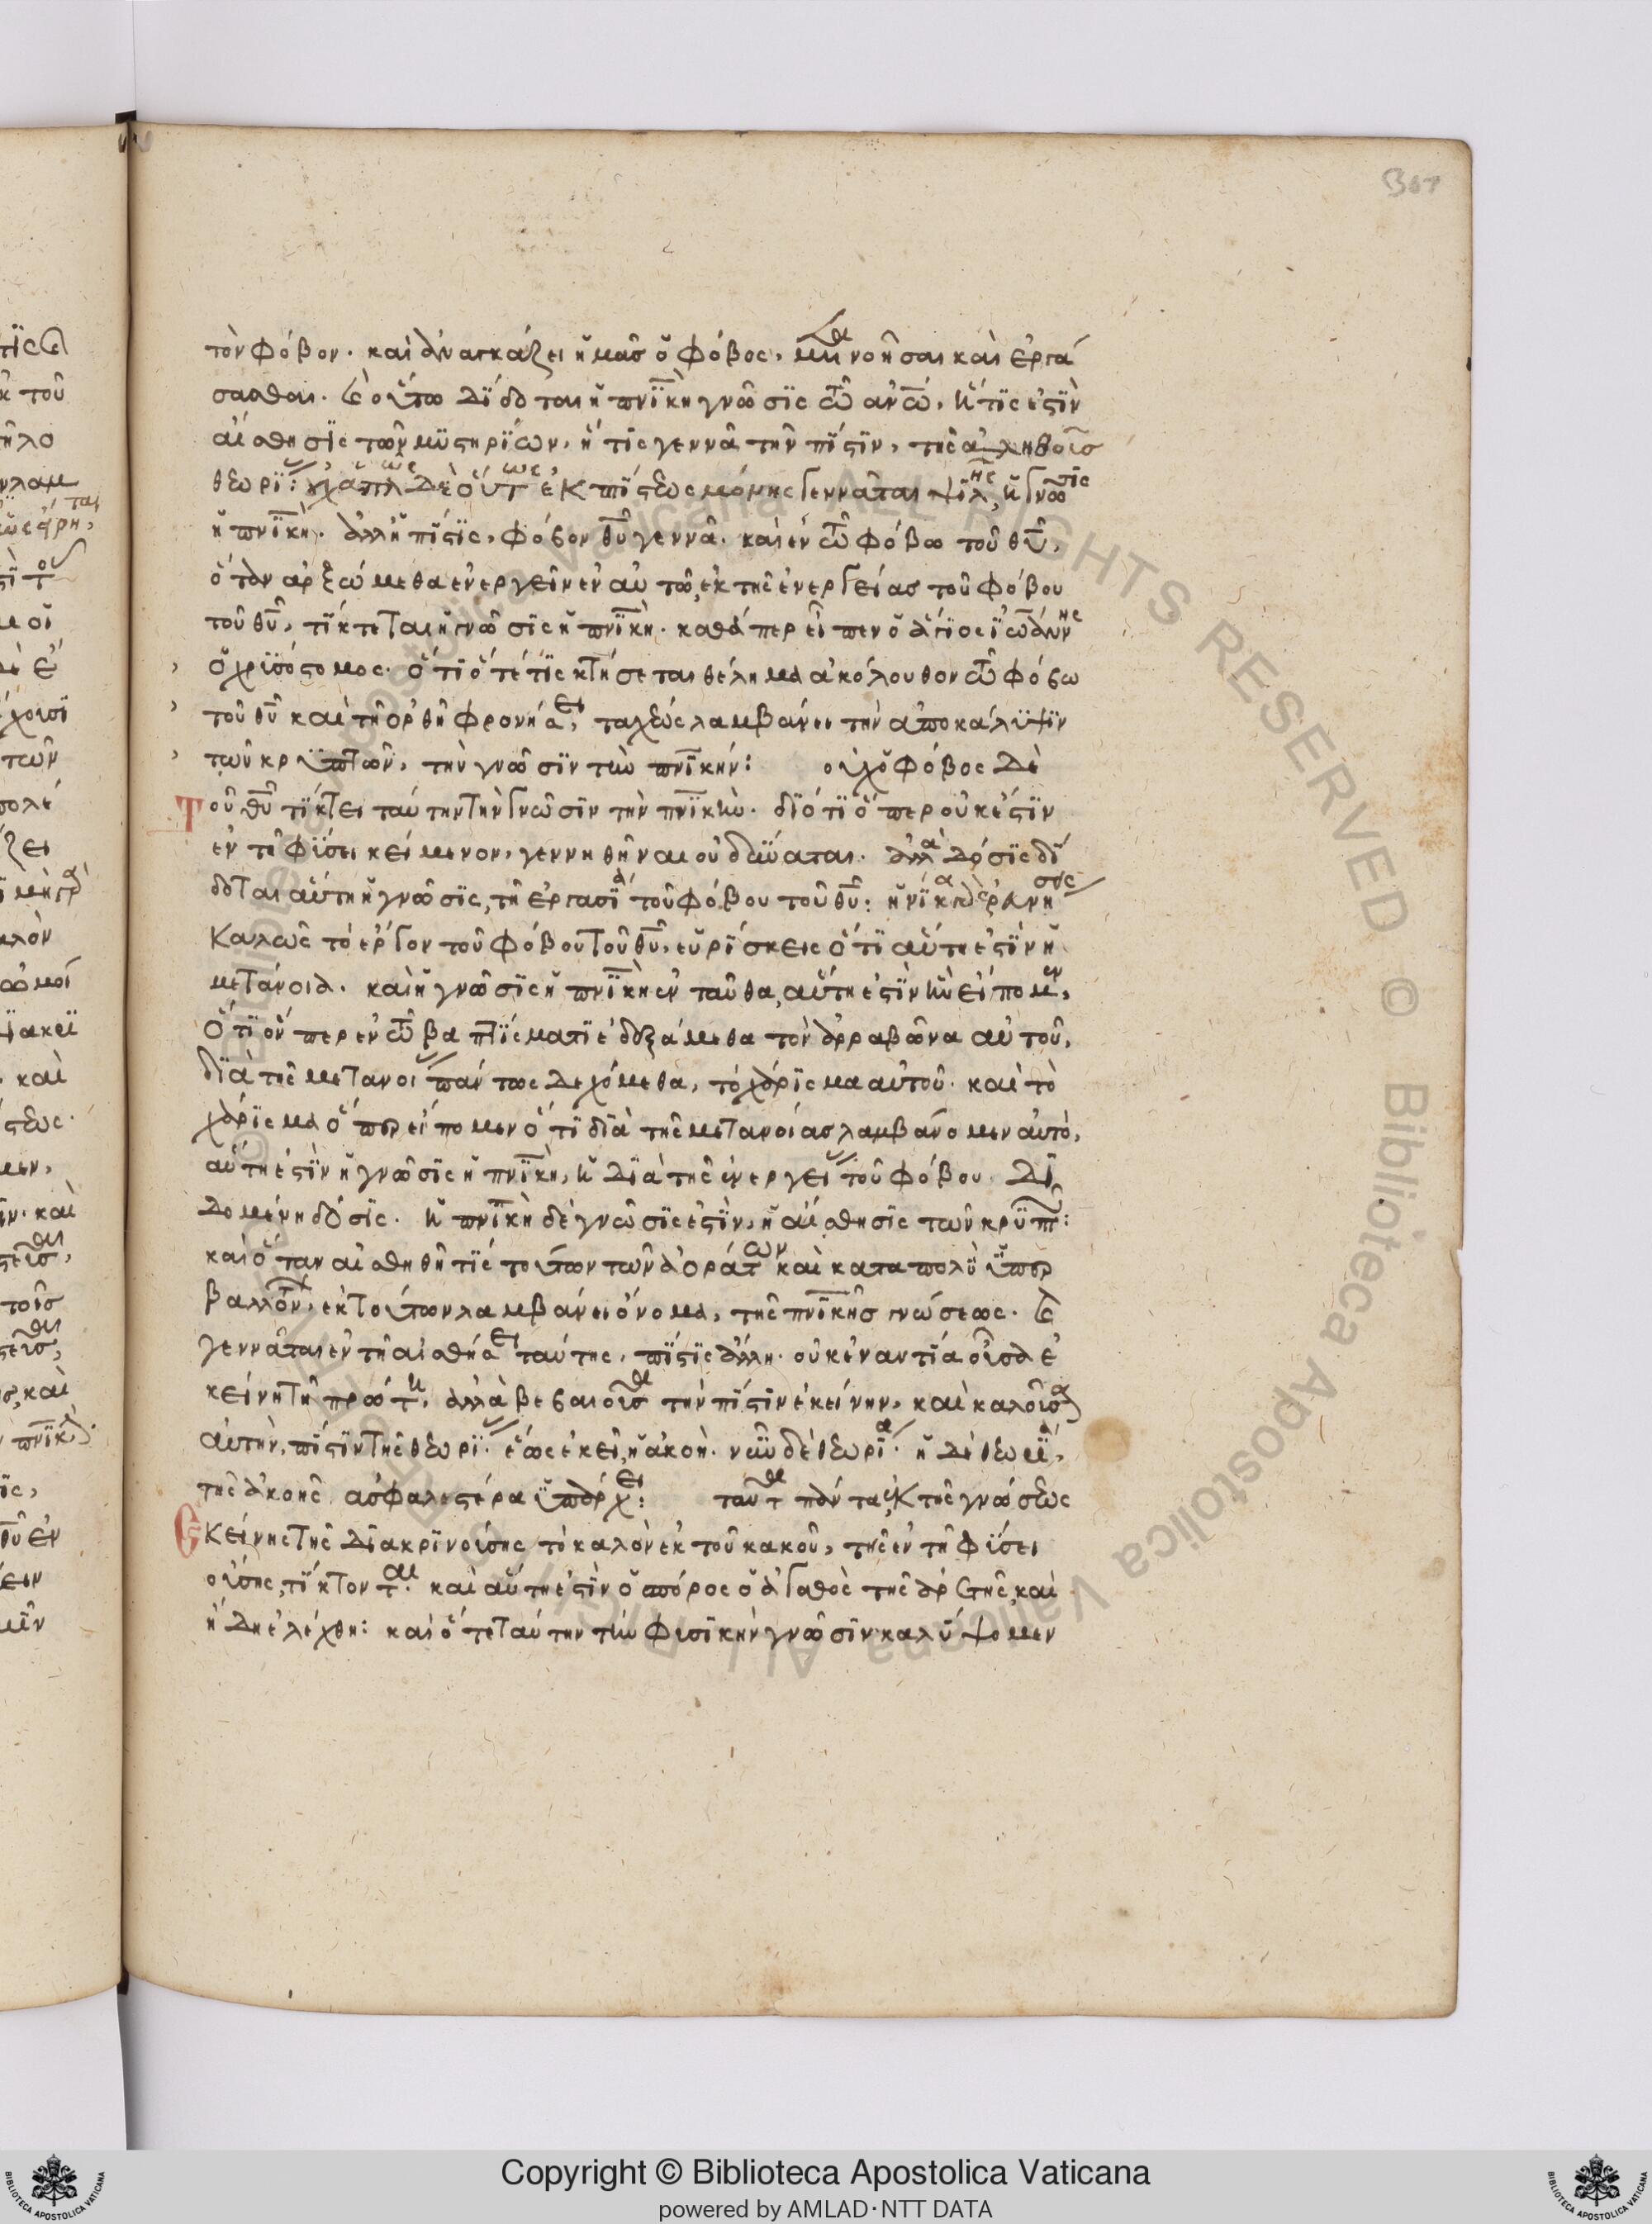 307
τὸν φόβον. καὶ ἀναγκάζει ἡμᾶς ὁ φόβος, μετανοῆσαι καὶ ἐργά
σασθαι. καὶ οὕτω δίδοται ἡ πνικὴ γνῶσις τῶ ἀνω, ἥτις ἐστὶν
αἴσθησις τῶν μυστηρίων, ἥτις γεννᾶ τὴν πίστιν, τῆς ἀληθοῦς
θεωρί: οὐχ ἁπλῶς δὲ οὕτως, ἐκ πίστεως μόνης γεννᾶται ψιλῆς, ἡ γνῶσις
ἡ πνικὴ. ἀλλ' ἡ πίστις, φόβον θυ γεννᾶ. καὶ ἐν τῶ φόβω τοῦ θυ,
ὅταν ἀρξώμεθα ἐνεργεῖν ἐν αὐτῶ, ἐκ τῆς ἐνεργείας τοῦ φόβου
τοῦ θυ, τίκτεται ἡ γνῶσις ἡ πνικὴ. καθάπερ εἶπεν ὁ ἅγιος ἰωάννης
ὁ χρισόστομος. ὅτι ὅτέ τις κτήσεται θέλημα ἀκόλουθον τῶ φόβω
τοῦ θυ καὶ τῆ ὀρθῆ φρονήσει, ταχέως λαμβάνει τὴν ἀποκάλυψιν
τῶν κρυπτῶν, τὴν γνῶσιν τὴν πνικήν: οὐχ ὁ φόβος δὲ
Τοῦ θυ τίκτει ταύτην τὴν γνῶσιν τὴν πνικὴν. διότι ὅπερ οὐκ ἔστιν
ἐν τῆ φύσει κείμενον, γεννηθῆναι οὐ δύναται. ἀλλὰ δόσις δί
δοται αὕτη ἡ γνῶσις, τῆ ἐργασία τοῦ φόβου τοῦ θυ: ἡνίκα δὲ ἐρευνήσης
καλῶς τὸ ἔργον τοῦ φόβου τοῦ θυ, εὑρίσκεις ὅτι αὕτη ἐστὶν ἡ
μετάνοια. καὶ ἡ γνῶσις ἡ πνικὴ ἐνταῦθα, αὕτη ἐστὶν ἣν εἴπομεν,
ὅτι ὅνπερ ἐν τῶ βαπτίσματι ἐδεξάμεθα τὸν ἀρραβῶνα αὐτοῦ,
διὰ τῆς μετανοι πάντως δεχόμεθα, τὸ χάρισμα αὐτοῦ. καὶ τὸ
χάρισμα ὅπερ εἴπομεν ὅτι διὰ τῆς μετανοίας λαμβάνομεν αὐτό,
αὕτη ἐστὶν ἡ γνῶσις ἡ πνικὴ, ἡ διὰ τῆς ἐνεργεί τοῦ φόβου δι
δομένη δόσις. ἡ πνικὴ δὲ γνῶσις ἐστὶν, ἡ αἴσθησις τῶν κρυπτ:
καὶ ὅταν αἰσθηθῆ τὶς τούτων τῶν ἀοράτων καὶ κατα πολὺ ὑπερ
βαλλόντ, ἐκ τούτων λαμβάνει ὄνομα, τῆς πνικῆς γνώσεως. καὶ
γεννᾶται ἐν τῆ αἰσθήσει ταύτης, πίστις ἄλλη. οὐκ ἐναντία οὖσα ἐ
κείνη τῆ πρώτη, ἀλλὰ βεβαιοῦσα τὴν πίστιν ἐκείνην, καὶ καλοῦσα
αὐτὴν, πίστιν τῆς θεωρί. ἕως ἐκεῖ, ἡ ἀκοὴ. νῦν δὲ θεωρία. ἡ δὲ θεωρία,
τῆς ἀκοῆς ἀσφαλεστέρα ὑπάρχει: ταῦτα δὲ πάντα, ἐκ τῆς γνώσεως
Ἐκείνης τῆς διακρινούσης τὸ καλὸν ἐκ τοῦ κακοῦ, τῆς ἐν τῆ φύσει
οὔσης, τίκτονται. καὶ αὕτη ἐστὶν ὁ σπόρος ὁ ἀγαθὸς τῆς ἀρετῆς, καὶ
ἤδη ἐλέχθη: καὶ ὅτε ταύτην τὴν φυσικὴν γνῶσιν καλύψομεν
Copyright © Biblioteca Apostolica Vaticana
powered by AMLAD·NTT DATA